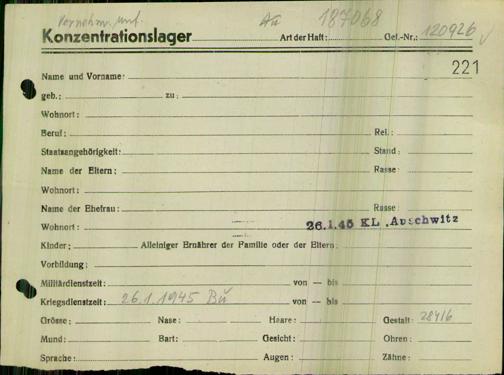 Vernehm. unf. Au 187068
Konzentrationslager Art der Haft: Gef.-Nr.: 120926
221
Name und Vorname:
geb.: zu:
Wohnort:
Beruf: Rel.:
Staatsangehörigkeit: Stand:
Name der Eltern: Rasse:
Wohnort:
Name der Ehefrau: Rasse:
Wohnort: 26.1.45 KL. Auschwitz
Kinder: Alleiniger Ernährer der Familie oder der Eltern:
Vorbildung:
Militärdienstzeit: von — bis
Kriegsdienstzeit: 26.1.1945 Bu von — bis
Grösse: Nase: Haare: Gestalt: 28416
Mund: Bart: Gesicht: Ohren:
Sprache: Augen: Zähne: